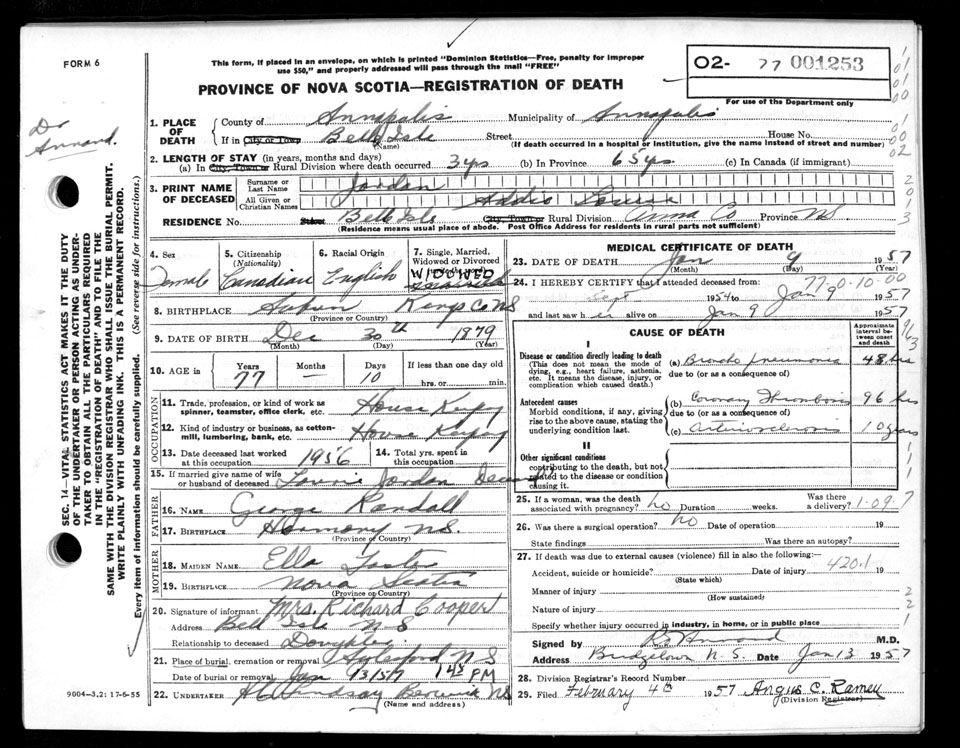 FORM 6
This form, if placed in an envelope, on which is printed "Dominion Statistics—Free, penalty for improper
use $50," and properly addressed will pass through the mail "FREE"
02- 77 001253
For use of the Department only
PROVINCE OF NOVA SCOTIA—REGISTRATION OF DEATH
Dr
Annand.
1. PLACE OF DEATH
County of Annapolis Municipality of Annapolis
If in City or Town Belle Isle Street House No.
(Name) (If death occurred in a hospital or institution, give the name instead of street and number)
2. LENGTH OF STAY (in years, months and days)
(a) In City, Town or Rural Division where death occurred 3 yrs (b) In Province 65 yrs (c) In Canada (if immigrant)
3. PRINT NAME OF DECEASED
Surname or Last Name Jordan
All Given or Christian Names Addie Louise
RESIDENCE No. Street Belle Isle City, Town or Rural Division Anna Co Province NS
(Residence means usual place of abode. Post Office Address for residents in rural parts not sufficient)
4. Sex Female
5. Citizenship (Nationality) Canadian
6. Racial Origin English
7. Single, Married, Widowed or Divorced WIDOWED
8. BIRTHPLACE Kings Co NS
(Province or Country)
9. DATE OF BIRTH Dec 30th 1879
(Month) (Day) (Year)
10. AGE in Years 77 Months — Days 10 If less than one day old
hrs. or min.
OCCUPATION
11. Trade, profession, or kind of work as spinner, teamster, office clerk, etc. House Keeping
12. Kind of industry or business, as cotton-mill, lumbering, bank, etc. House Keeping
13. Date deceased last worked at this occupation 1956
14. Total yrs. spent in this occupation
15. If married give name of wife or husband of deceased Jordan
FATHER
16. NAME George Randall
17. BIRTHPLACE Harmony N.S.
(Province or Country)
MOTHER
18. MAIDEN NAME Ella
19. BIRTHPLACE Nova Scotia
(Province or Country)
20. Signature of informant Mrs. Richard Cooper
Address Bell Isle N S
Relationship to deceased Doughter
21. Place of burial, cremation or removal Aylesford N S
Date of burial or removal Jan 1 45 PM
22. UNDERTAKER Lindsay Berwick NS
(Name and address)
9004—3.2: 17-6-55
SEC. 14—VITAL STATISTICS ACT MAKES IT THE DUTY
OF THE UNDERTAKER OR PERSON ACTING AS UNDER-
TAKER TO OBTAIN ALL THE PARTICULARS REQUIRED
IN THE "REGISTRATION OF DEATH" AND TO FILE THE
SAME WITH THE DIVISION REGISTRAR WHO SHALL ISSUE THE BURIAL PERMIT.
WRITE PLAINLY WITH UNFADING INK. THIS IS A PERMANENT RECORD.
Every item of information should be carefully supplied. (See reverse side for instructions.)
MEDICAL CERTIFICATE OF DEATH
23. DATE OF DEATH Jan 9 1957
(Month) (Day) (Year)
77-0-10-00
24. I HEREBY CERTIFY that I attended deceased from:
Sept 1954 to Jan 9 1957
and last saw her alive on Jan 9 1957
CAUSE OF DEATH
Approximate interval between onset and death
I
Disease or condition directly leading to death
(This does not mean the mode of dying, e.g., heart failure, asthenia, etc. It means the disease, injury, or complication which caused death.)
(a) Broncho pneumonia 48 hrs
due to (or as a consequence of)
Antecedent causes
Morbid conditions, if any, giving rise to the above cause, stating the underlying condition last.
(b) Coronary Thrombosis 96 hrs
due to (or as a consequence of)
(c) Arteriosclerosis 10 years
II
Other significant conditions
contributing to the death, but not related to the disease or condition causing it.
25. If a woman, was the death associated with pregnancy? no Duration weeks. Was there a delivery? 1-09-7
26. Was there a surgical operation? no Date of operation 19
State findings Was there an autopsy?
27. If death was due to external causes (violence) fill in also the following:—
420.1
Accident, suicide or homicide? Date of injury 19
(State which)
Manner of injury
(How sustained)
Nature of injury
Specify whether injury occurred in industry, in home, or in public place
Signed by Annand M.D.
Address Bridgetown N. S. Date Jan 13 1957
28. Division Registrar's Record Number
29. Filed February 4th 1957 Angus C. Ramey
(Division Registrar)